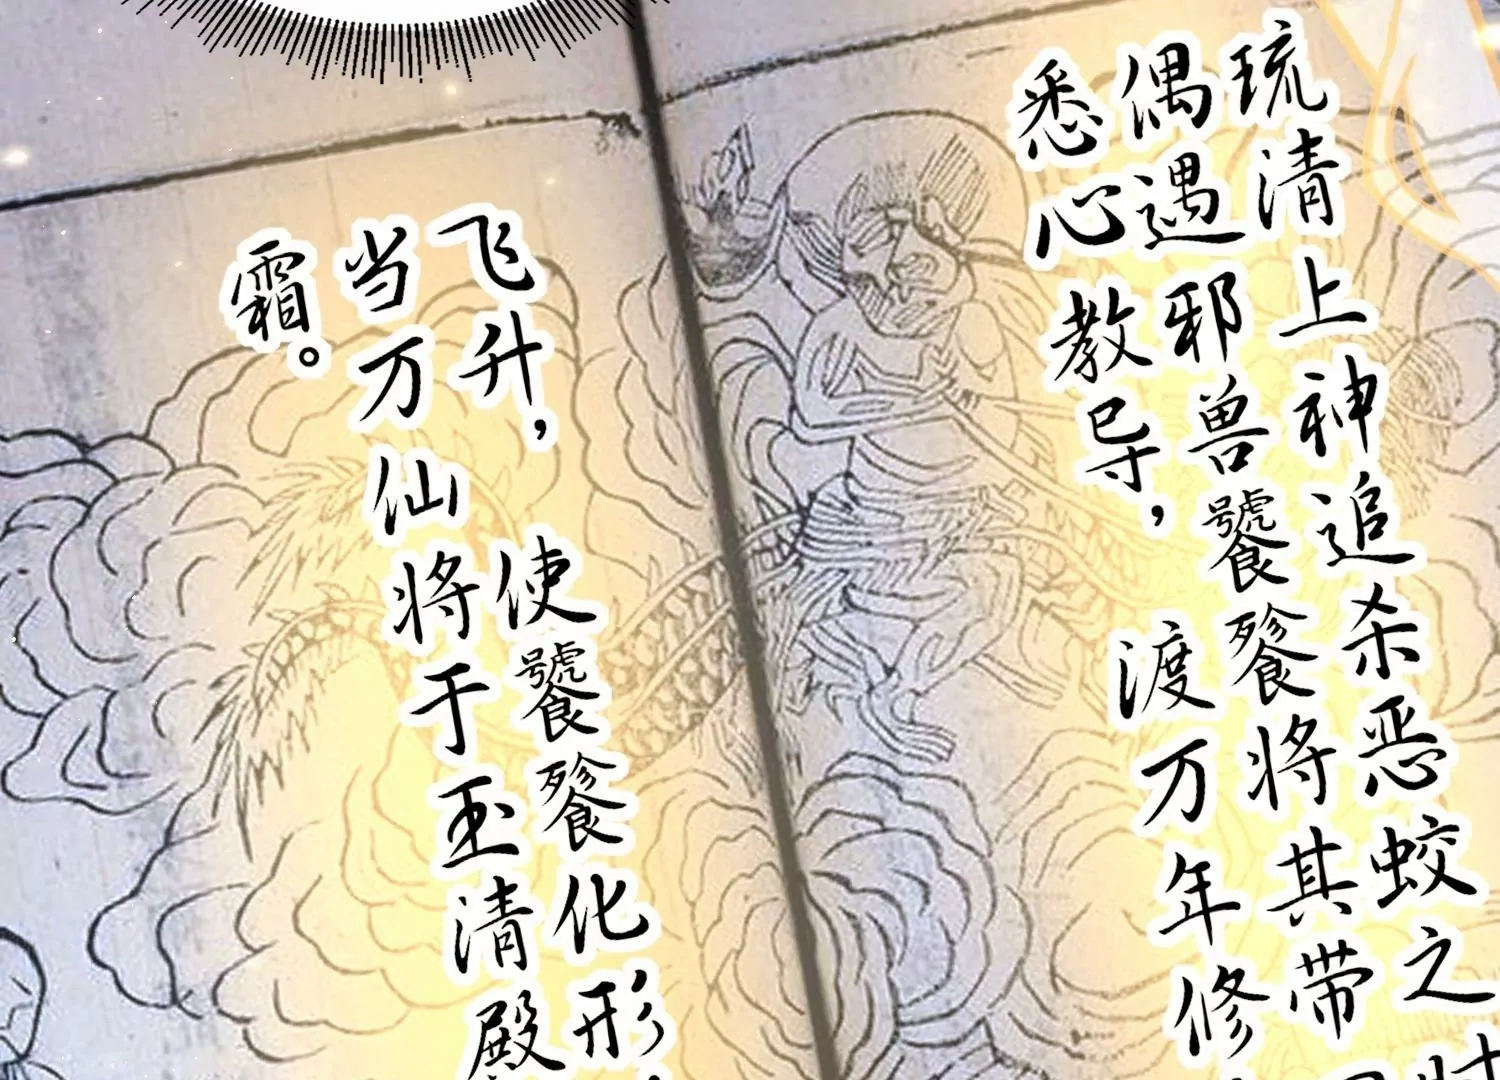 琉清上神追杀恶蛟之时
偶遇邪兽饕餮将其带
悉心教导，渡万年修
飞升，使饕餮化形，
当万仙将于玉清殿
霜。